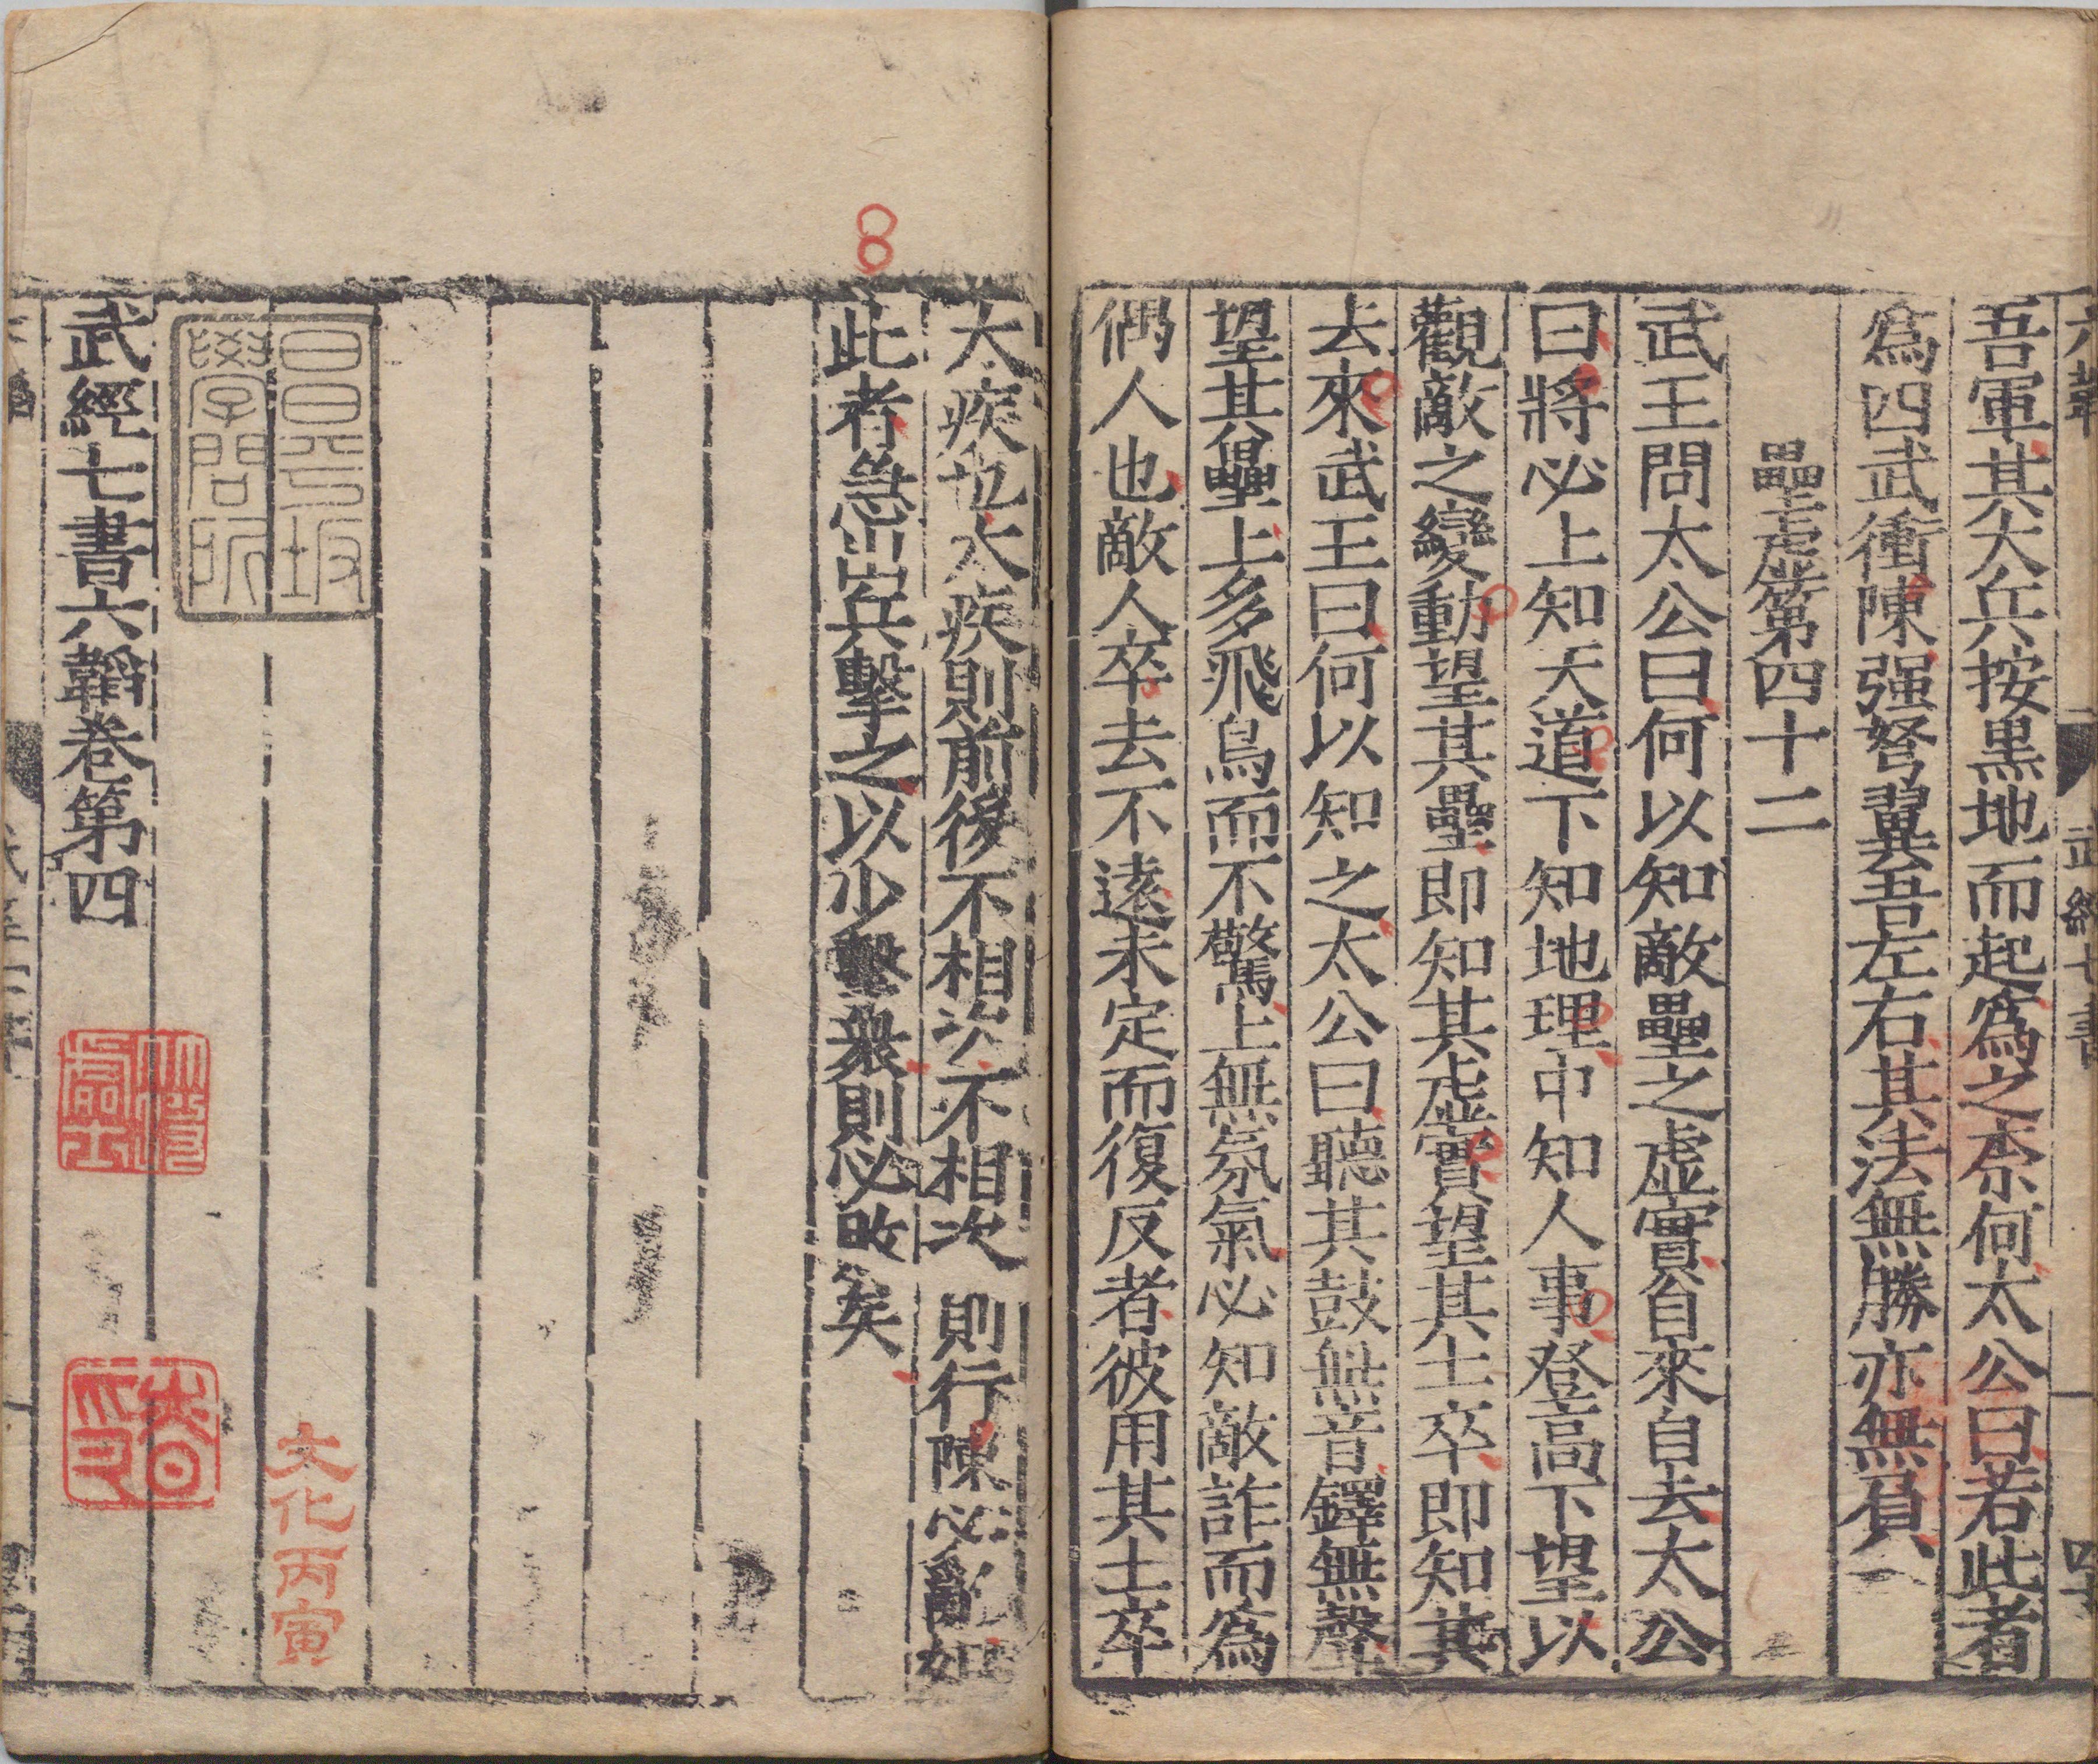 六韜
武經七書
吾軍其大兵按黑地而起爲之柰何太公曰若此者
爲四武衝陳强弩翼吾左右其法無勝亦無負
壘虛第四十二
武王問太公曰何以知敵壘之虛實自來自去太公
曰將必上知天道下知地理中知人事登高下望以
觀敵之變動望其壘即知其虛實望其士卒即知其
去來武王曰何以知之太公曰聽其鼓無音鐸無聲
望其壘上多飛鳥而不驚上無氛氣必知敵詐而爲
偶人也敵人卒去不遠未定而復反者彼用其士卒
太疾也太疾則前後不相次不相次則行陳必亂如
此者急出兵擊之以少擊衆則必敗矣
昌平坂
學問所
文化丙寅
武經七書六韜卷第四